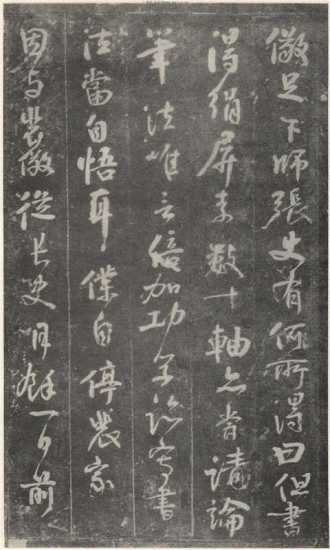 儆足下師張史有何所得曰但書
得絹屏素數十軸亦嘗請論
筆法惟言倍加功學臨寫書
法當自悟耳僕自停裴家
因与裴儆從長史月餘一日前